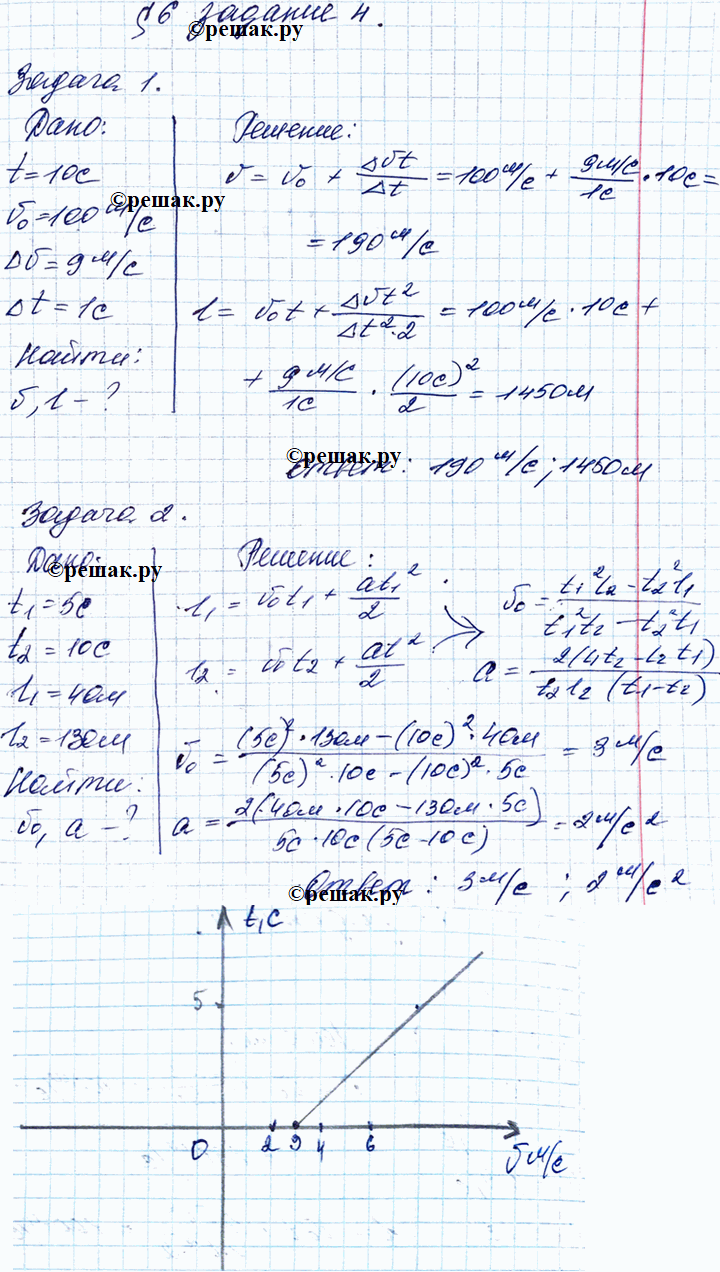 §6 задание 4.
©решак.ру
Задача 1.
Дано:
t=10с
©решак.ру
v₀=100 м/с
Δv=9 м/с
Δt=1с
Найти:
v, l - ?
Решение:
v = v₀ + Δvt/Δt = 100 м/с + 9 м/с/1с · 10с =
= 190 м/с
l = v₀t + Δvt²/Δt²·2 = 100 м/с · 10с +
+ 9 м/с/1с · (10с)²/2 = 1450м
©решак.ру
Ответ: 190 м/с; 1450м
Задача 2.
Дано:
©решак.ру
t₁=5с
t₂=10с
l₁=40м
l₂=130м
Найти:
v₀, a - ?
Решение:
l₁ = v₀t₁ + at₁²/2
l₂ = v₀t₂ + at²/2
v₀ = t₁²l₂ - t₂²l₁/t₁²t₂ - t₂²t₁
a = 2(l₁t₂ - l₂t₁)/t₂l₂(t₁-t₂)
v₀ = (5с)²·130м - (10с)²·40м/(5с)²·10с - (10с)²·5с = 3 м/с
a = 2(40м·10с - 130м·5с)/5с·10с(5с-10с) = 2 м/с²
Ответ: 3 м/с ; 2 м/с²
©решак.ру
t,с
5
0 2 3 4 6
v м/с